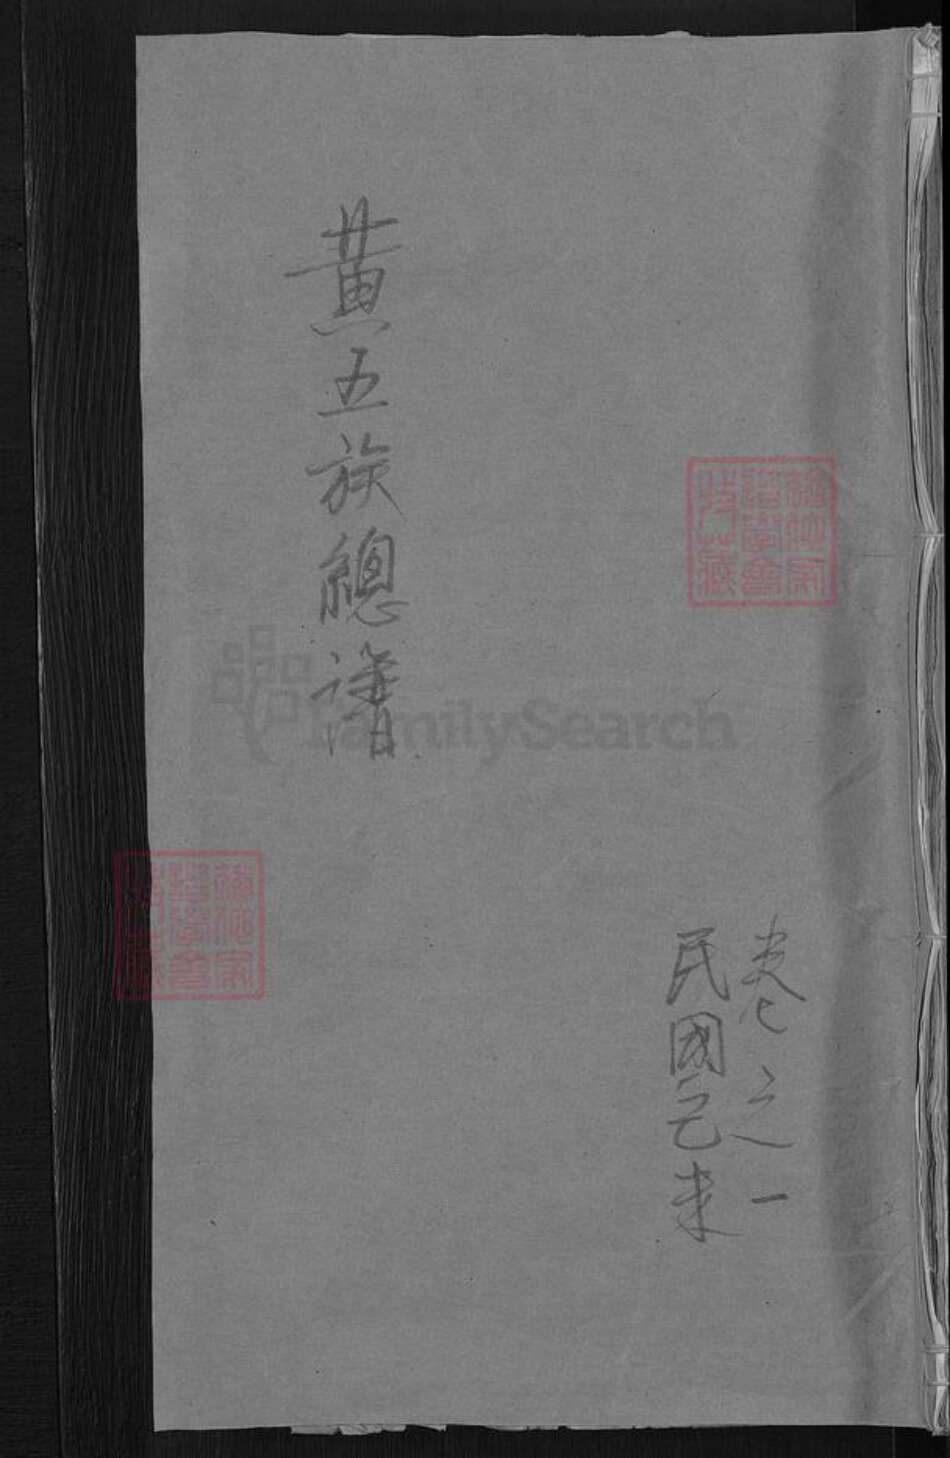 卷之一
民國己未
黃五族總譜
FamilySearch